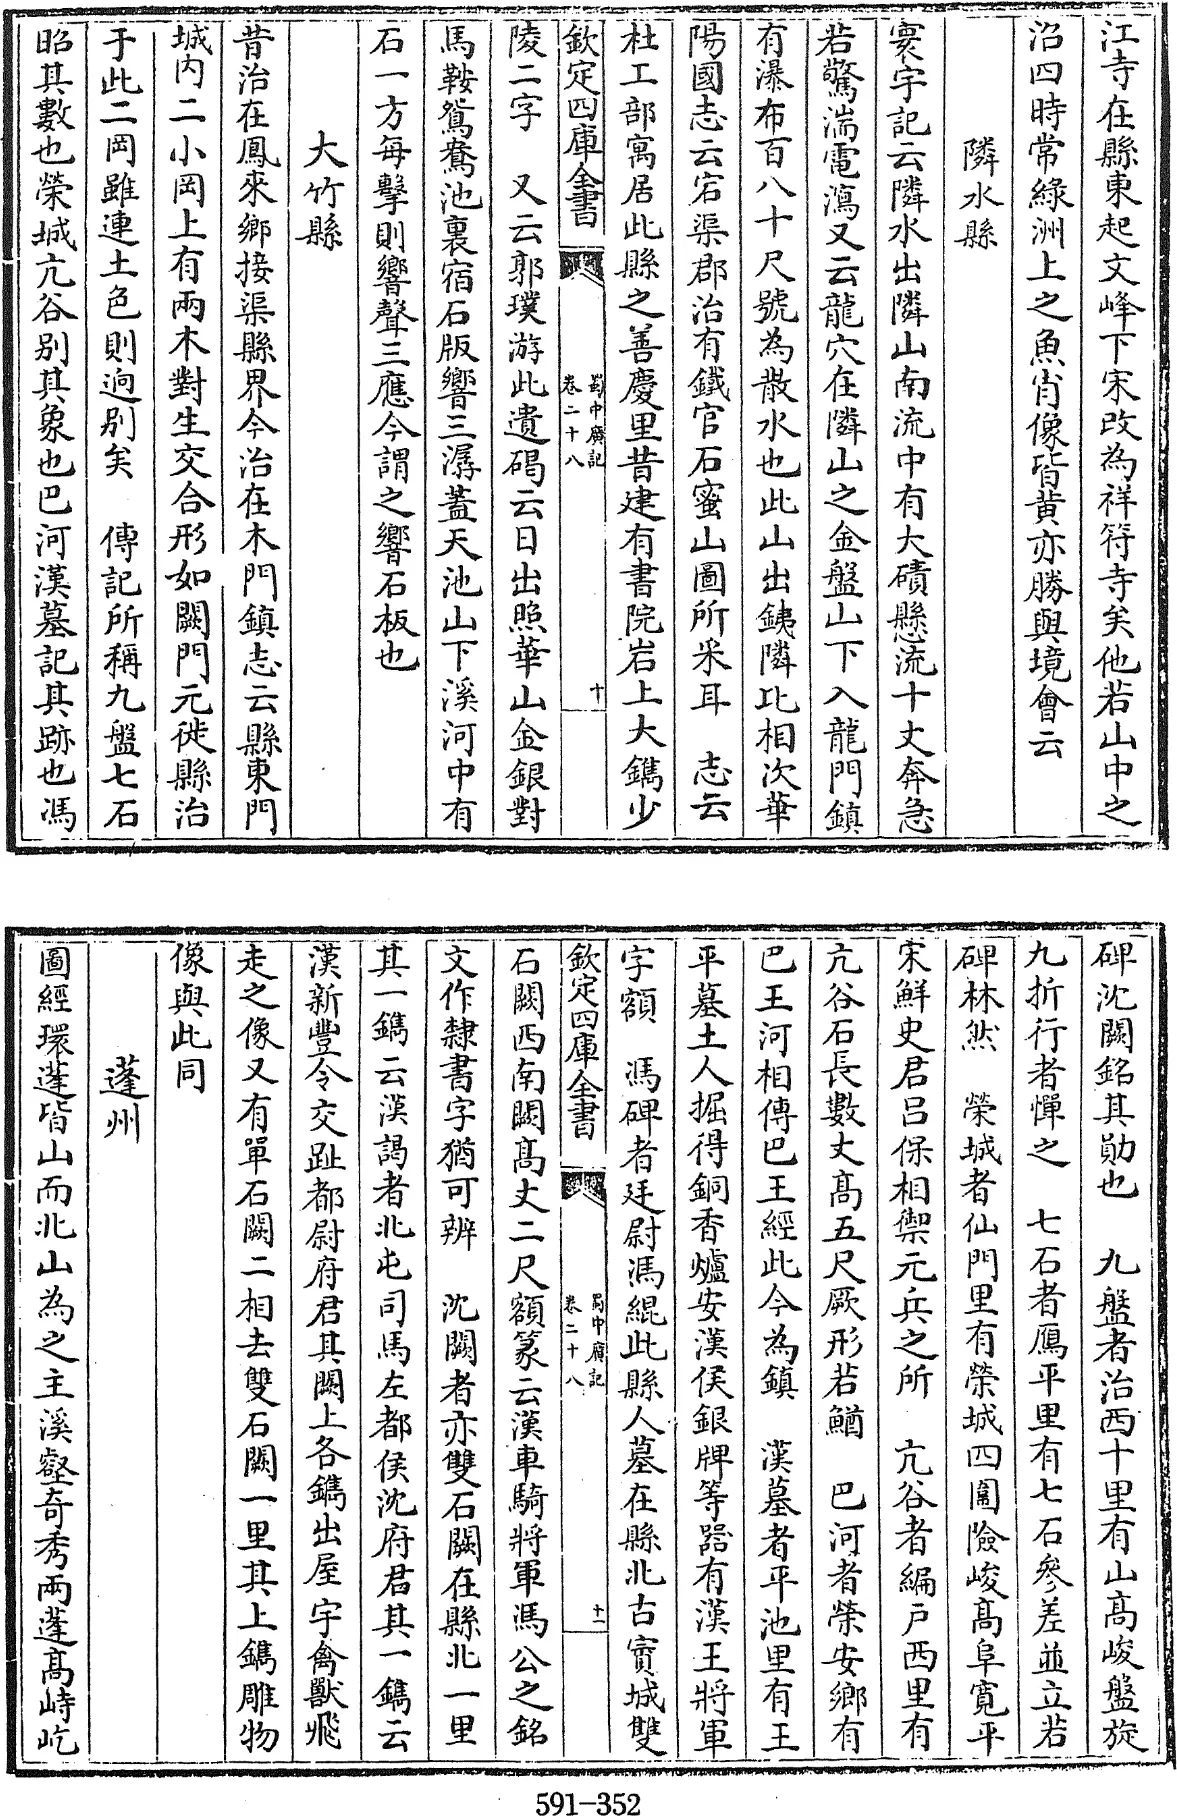 江寺在縣東起文峰下宋改為祥符寺矣他若山中之
沼四時常綠洲上之魚肖像皆黃亦勝與境會云
隣水縣
寰宇記云隣水出隣山南流中有大磧懸流十丈奔急
若驚湍電瀉又云龍穴在隣山之金盤山下入龍門鎮
有瀑布百八十尺號為散水也此山出銕隣比相次華
陽國志云宕渠郡治有鐵官石蜜山圖所采耳　志云
杜工部寓居此縣之善慶里昔建有書院岩上大鐫少
欽定四庫全書
蜀中廣記
卷二十八
十
陵二字　又云郭璞游此遺碣云日出照華山金銀對
馬鞍鴛鴦池裏宿石版響三潺蓋天池山下溪河中有
石一方每擊則響聲三應今謂之響石板也
大竹縣
昔治在鳳來鄉接渠縣界今治在木門鎮志云縣東門
城內二小岡上有兩木對生交合形如闕門元徙縣治
于此二岡雖連土色則逈別矣　傳記所稱九盤七石
昭其數也榮城亢谷別其象也巴河漢墓記其跡也馮
碑沈闕銘其勛也　九盤者治西十里有山高峻盤旋
九折行者憚之　七石者鴈平里有七石參差並立若
碑林然　榮城者仙門里有榮城四圍險峻高阜寬平
宋鮮史君呂保相禦元兵之所　亢谷者編戶西里有
亢谷石長數丈高五尺厥形若鰌　巴河者榮安鄉有
巴王河相傳巴王經此今為鎮　漢墓者平池里有王
平墓土人掘得銅香爐安漢侯銀牌等器有漢王將軍
字額　馮碑者廷尉馮緄此縣人墓在縣北古賨城雙
欽定四庫全書
蜀中廣記
卷二十八
十一
石闕西南闕高丈二尺額篆云漢車騎將軍馮公之銘
文作隸書字猶可辨　沈闕者亦雙石闕在縣北一里
其一鐫云漢謁者北屯司馬左都侯沈府君其一鐫云
漢新豐令交趾都尉府君其闕上各鐫出屋宇禽獸飛
走之像又有單石闕二相去雙石闕一里其上鐫雕物
像與此同
蓬州
圖經環蓬皆山而北山為之主溪壑奇秀兩蓬高峙屹
591-352